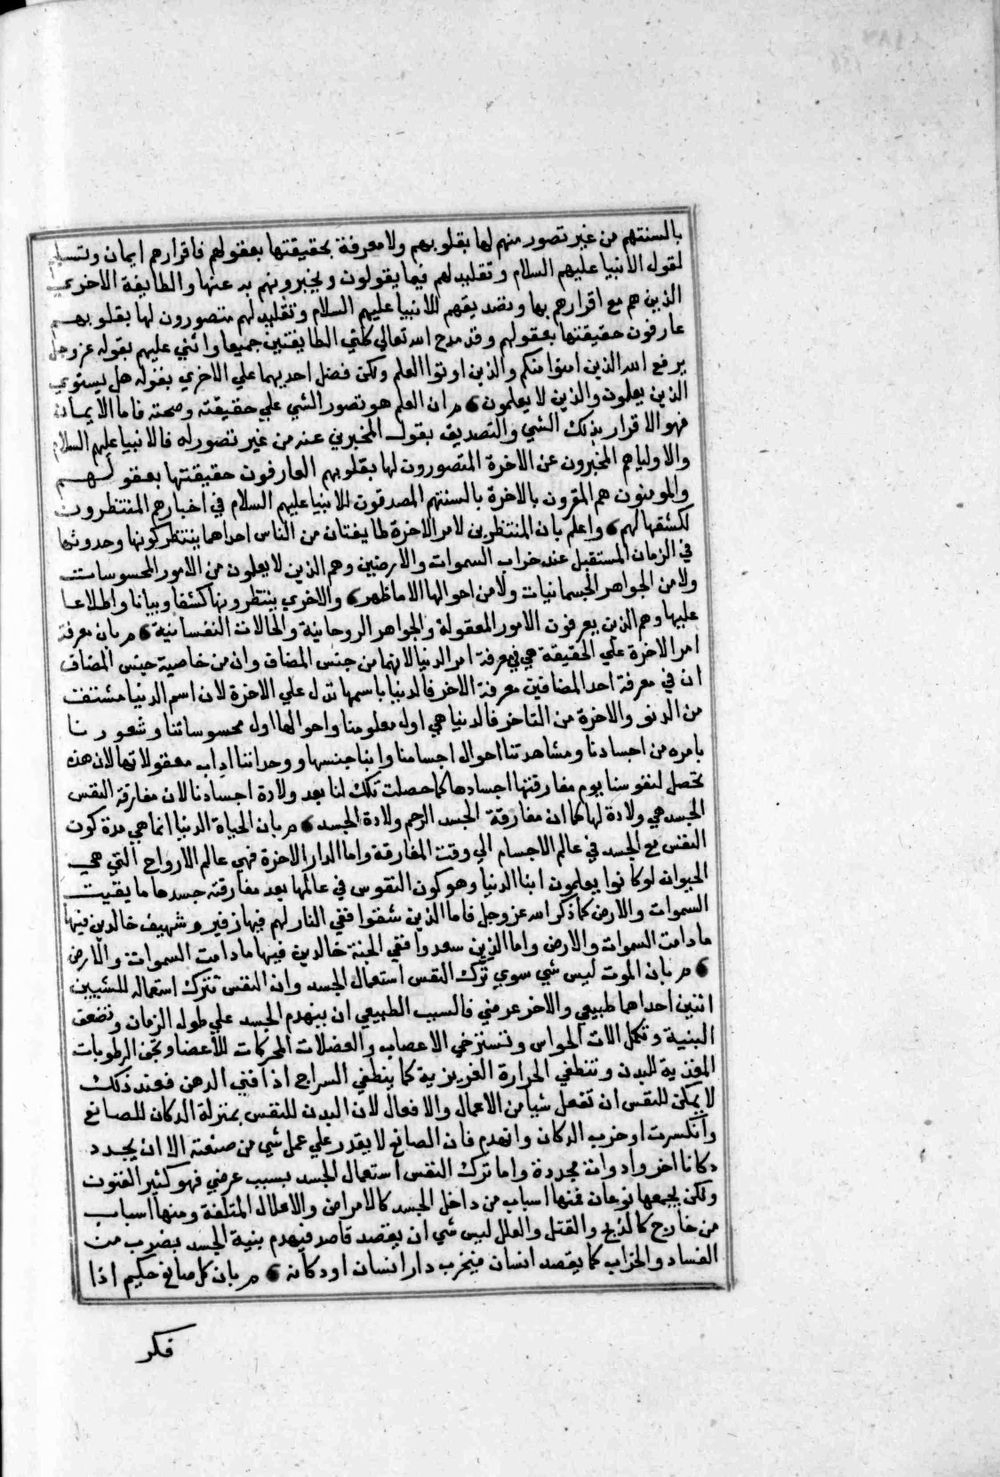 بالسنتهم من غير تصور منهم لها بقلوبهم ولا معرفة بحقيقتها بعقولهم فاقرارهم ايمان وتسليم
لقول الانبيا عليهم السلام وتقليد لهم فيما يقولون ويخبرونهم به عنها والطايفة الاخري
الذين هم مع اقرارهم بها وتصديقهم الانبيا عليهم السلام وتقليد لهم متصورون لها بقلوبهم
عارفون حقيقتها بعقولهم وقد مدح الله تعالي كلتي الطايفتين جميعا واثني عليهم بقوله عز وجل
يرفع الله الذين امنوا منكم والذين اوتوا العلم ولكن فضل احديهما علي الاخري بقوله هل يستوي
الذين يعلمون والذين لا يعلمون 6 م ان العلم هو تصور الشي علي حقيقته وصحته فاما الايمان
فهو الاقرار بذلك الشي والتصديق بقول المخبرين عنه من غير تصور له فالانبيا عليهم السلام
والاوليا هم المخبرون عن الاخرة المتصورون لها بقلوبهم العارفون حقيقتها بعقولهم
والمومنون هم المقرون بالاخرة بالسنتهم المصدقون للانبيا عليهم السلام في اخبارهم المنتظرون
لكشفها لهم 6 واعلم بان المنتظرين لامر الاخرة طايفتان من الناس احداهما ينتظر كونها وحدوثها
في الزمان المستقبل عند خراب السموات والارضين وهم الذين لا يعلمون من الامور المحسوسات
ولا من الجواهر الجسمانيات ولا من احوالها الا ما ظهر 6 والاخري ينتظرونها كشفا وبيانا واطلاعا
عليها وهم الذين يعرفون الامور المعقولة والجواهر الروحانية والحالات النفسانية 6 م بان معرفة
امر الاخرة علي الحقيقة هي في معرفة امر الدنيا لانهما من جنس المضاف وان من خاصية جنس المضاف
ان في معرفة احد المضافين معرفة الاخر فالدنيا باسمها تدل علي الاخرة لان اسم الدنيا مشتقت
من الدنو والاخرة من التاخر فالدنيا هي اول معلومنا واحوالها اول محسوساتنا وشعورنا
بامره من اجسادنا ومشاهدتنا احوال اجسامنا وابنا جنسها ووحداننا معقولاتها لان هذه
تحصل لنفوسنا يوم مفارقتها اجسادها كما حصلت تلك لنا بعد ولادة اجسادنا لان مفارقة النفس
الجسد هي ولادة لها كما ان مفارقة الجسد الرحم ولادة الجسد 6 م بان الحياة الدنيا انما هي مدة كون
النفس مع الجسد في عالم الاجسام الي وقت المفارقة واما الدار الاخرة فهي عالم الارواح التي هي
الحيوان لو كانوا يعلمون ابنا الدنيا وهو كون النفوس في عالمها بعد مفارقته جسدها ما بقيت
السموات والارض كما ذكر الله عز وجل فاما الذين شقوا ففي النار لهم فيها زفير وشهيق خالدين فيها
ما دامت السموات والارض واما الذين سعدوا ففي الجنة خالدين فيها ما دامت السموات والارض
6 م بان الموت ليس شي سوي ترك النفس استعمال الجسد وان النفس تترك استعماله للسببين
اثنين احداهما طبيعي والاخر عرضي فالسبب الطبيعي ان ينهدم الجسد علي طول الزمان وتضعف
البنية وتكل الات الحواس وتسترخي الاعصاب والعضلات المحركات للاعضا وتجف الرطوبات
المغذية للبدن وتنطفي الحرارة الغريزية كما ينطفي السراج اذا فني الدهن فعند ذلك
لا يمكن للنفس ان تفعل شيا من الاعمال والافعال لان البدن للنفس بمنزلة الدكان للصانع
وانكسرت او خرب الدكان وانهدم فان الصانع لا يقدر علي عمل شي من صنعته الا ان يجدد
دكانا اخر وادواة مجددة واما ترك النفس استعمال الجسد بسبب عرضي فهو كثير الفنون
ولكن يجمعها نوعان فمنها اسباب من داخل الجسد كالامراض والاعلال المتلفة ومنها اسباب
من خارج كالذبح والقتل والعلل ليس شي ان يقصد قاصد فيهدم بنية الجسد بضرب من
الفساد والخراب كما يقصد انسان فيخرب دار انسان او دكانه 6 م بان كل صانع حكيم اذا
فكر